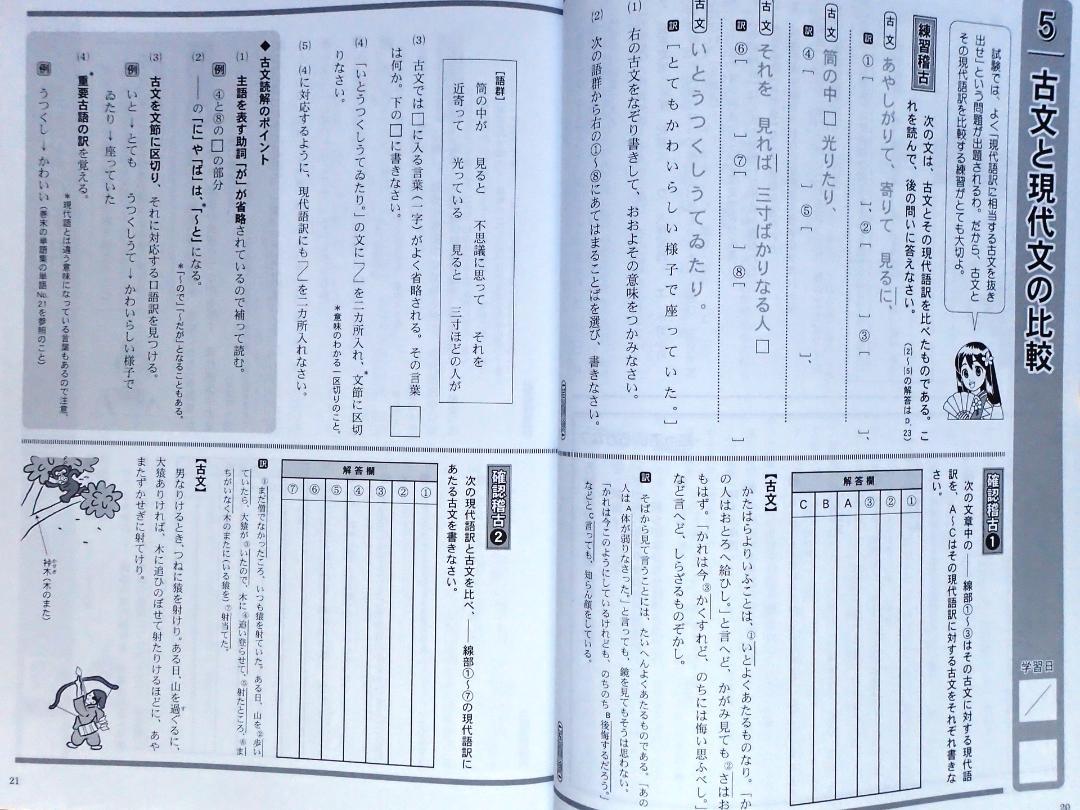 5 古文と現代文の比較
学習日
試験では、よく「現代語訳に相当する古文を抜き
出せ」という問題が出題されるわ。だから、古文と
その現代語訳を比較する練習がとても大切よ。
練習稽古
次の文は、古文とその現代語訳を比べたものである。こ
れを読んで、後の問いに答えなさい。
(2)～(5)の解答はP.23)
古文 あやしがりて、寄りて 見るに、
訳 ①[ ]、②[ ] ③[ ]、
古文 筒の中 □ 光りたり、
訳 ④[ ] ⑤[ ]、
古文 それを 見れば 三寸ばかりなる人 □
訳 ⑥[ ] ⑦[ ] ⑧[ ]
古文 いとうつくしうてゐたり。
訳 [とてもかわいらしい様子で座っていた。]
(1) 右の古文をなぞり書きして、おおよその意味をつかみなさい。
(2) 次の語群から右の①～⑧にあてはまることばを選び、書きなさい。
[語群]
筒の中が 見ると 不思議に思って それを
近寄って 光っている 見ると 三寸ほどの人が
(3) 古文では□に入る言葉(一字)がよく省略される。その言葉
は何か。下の□に書きなさい。
(4) 「いとうつくしうてゐたり。」の文に「／」を二カ所入れ、文節*に区切
りなさい。
*意味のわかる一区切りのこと。
(5) (4)に対応するように、現代語訳にも「／」を二カ所入れなさい。
◆古文読解のポイント
(1) 主語を表す助詞「が」が省略されているので補って読む。
例 ④と⑧の□の部分
(2) ――の「に」や「ば」は、「～と」*になる。
*「～ので」「～だが」となることもある。
(3) 古文を文節に区切り、それに対応する口語訳を見つける。
例 いと→とても うつくしうて→かわいらしい様子で
ゐたり→座っていた
(4) 重要古語の訳*を覚える。
*現代語とは違う意味になっている言葉もあるので注意。
例 うつくし→かわいい(巻末の単語集の単語No.21を参照のこと)
確認稽古❶
次の文章中の――線部①～③はその古文に対する現代語
訳を、A～Cはその現代語訳に対する古文をそれぞれ書きな
さい。
解答欄
①
②
③
A
B
C
【古文】
かたはらよりいふことは、①いとよくあたるものなり。「か
の人はおとろへ給ひし。」と言へど、かがみ見ても②さはお
もはず。「かれは今③かくすれど、のちには悔い思ふべし。」
など言へど、しらざるものぞかし。
訳 そばから見て言うことには、たいへんよくあたるものである。「あの
人はA体が弱りなさった。」と言っても、鏡を見てもそうは思わない。
「かれは今このようにしているけれども、のちのちB後悔するだろう。」
などとC言っても、知らん顔をしている。
確認稽古❷
次の現代語訳と古文を比べ、――線部①～⑦の現代語訳に
あたる古文を書きなさい。
解答欄
①
②
③
④
⑤
⑥
⑦
訳 ①まだ僧でなかったころ、いつも猿を射ていた。ある日、山を②歩い
ていたら、大猿が③いたので、木に④追い登らせて、⑤射たところ、⑥ま
ちがいなく木のまたに(いる猿を)⑦射当てた。
【古文】
男なりけるとき、つねに猿を射けり。ある日、山を過ぐるに、
大猿ありければ、木に追ひのぼせて射たりけるほどに、あや
またずかせぎに射てけり。
す
かせぎ
桛木(木のまた)
21
20